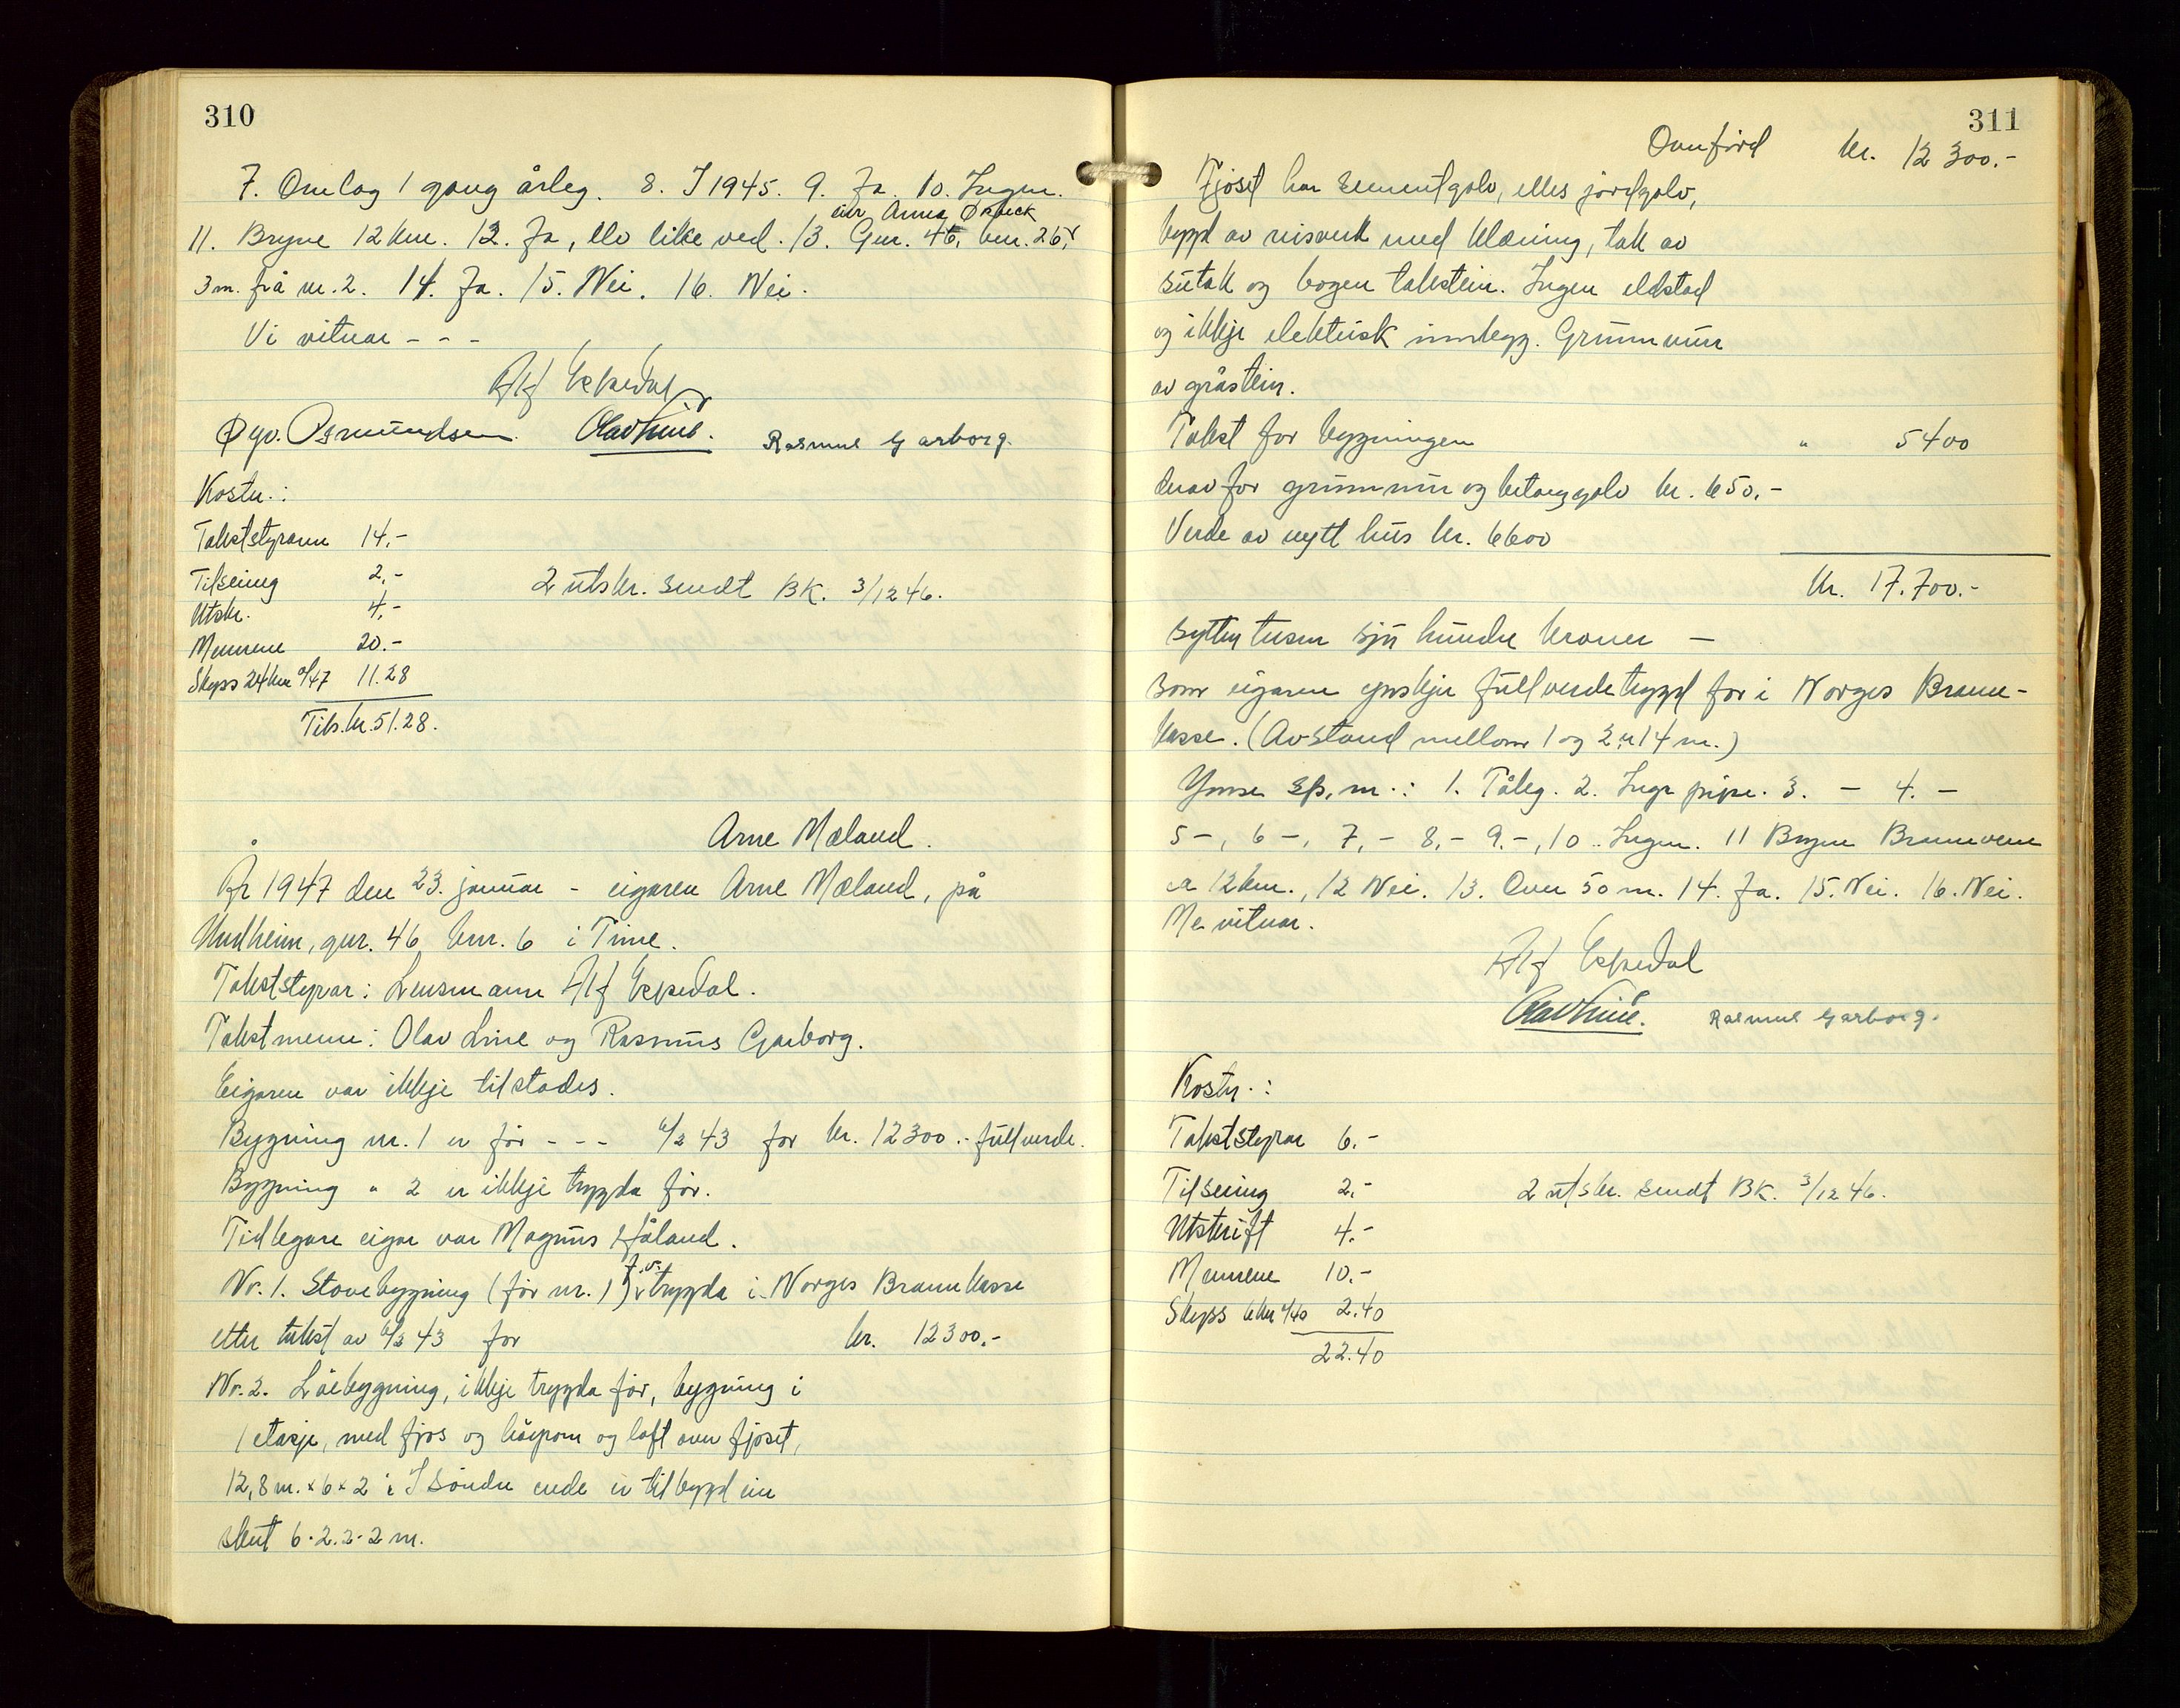 310
7. Omlag 1 gong årleg. 8. I 1945. 9. Ja. 10. Ingen.
eier Anna Ørbeck
11. Bryne 12 km. 12. Ja, elv like ved. 13. Gnr. 46, bnr. 26,
3 m. frå nr. 2. 14. Ja. 15. Nei. 16. Nei.
Vi vitnar - - -
Alf Espedal
Øyv. Osmundsen. Olav Line. Rasmus Garborg.
Kostn.:
Takststyraren 14.-
Tilseiing 2.-
Utskr. 4.-
Mennene 20.-
Skyss 24 km a/47 11.28
Tils. kr. 51.28.
2 utskr. sendt BK. 3/12 46.
Arne Mæland.
År 1947 den 23. januar - eigaren Arne Mæland, på
Undheim, gnr. 46 bnr. 6 i Time.
Takststyrar: Lensmann Alf Espedal.
Takstmenn: Olav Line og Rasmus Garborg.
Eigaren var ikkje tilstades.
Bygning nr. 1 er før - - - 6/3 43 for kr. 12300.- fullverde.
Bygning " 2 er ikkje trygda før.
Tidlegare eigar var Magnus Håland.
Nr. 1. Stovebygning (før nr. 1) f.v. trygda i Norges Brannkasse
etter takst av 6/3 43 for kr. 12300.-
Nr. 2. Løebygning, ikkje trygda før, bygning i
1 etasje, med fjos og høyrom og loft over fjoset,
12,8 m. x 6 x 2 i I søndre ende er tilbygd ein
skut 6·2.2·2 m.
311
Overførd kr. 12300.-
Fjøset har sementgolv, elles jordgolv,
bygd av reisverk med klæning, tak av
sutak og bogen takstein. Ingen eldstad
og ikkje elektrisk innlegg. Grunnmur
av gråstein.
Takst for bygningen " 5400
derav for grunnmur og betonggolv kr. 650.-
Verde av nytt hus kr. 6600
kr. 17.700.-
syttentusen sju hundre kroner -
som eigaren ynskjer fullverdetrygd for i Norges Brann-
kasse. (Avstand mellom 1 og 2 er 14 m.)
Ymse sp.m.: 1. Tåleg. 2. Inga pipe. 3. - 4. -
5 -, 6 -, 7, - 8, - 9. -, 10. Ingen. 11 Bryne Brannvern
ca 12 km., 12 Nei. 13. Over 50 m. 14. Ja. 15. Nei. 16. Nei.
Me vitnar.
Alf Espedal
Olav Line. Rasmus Garborg.
Kostn.:
Takststyrar 6.-
Tilseiing 2.-
Utskrift 4.-
Mennene 10.-
Skyss 6 km a/40 2.40
22.40
2 utskr. sendt BK. 3/12 46.